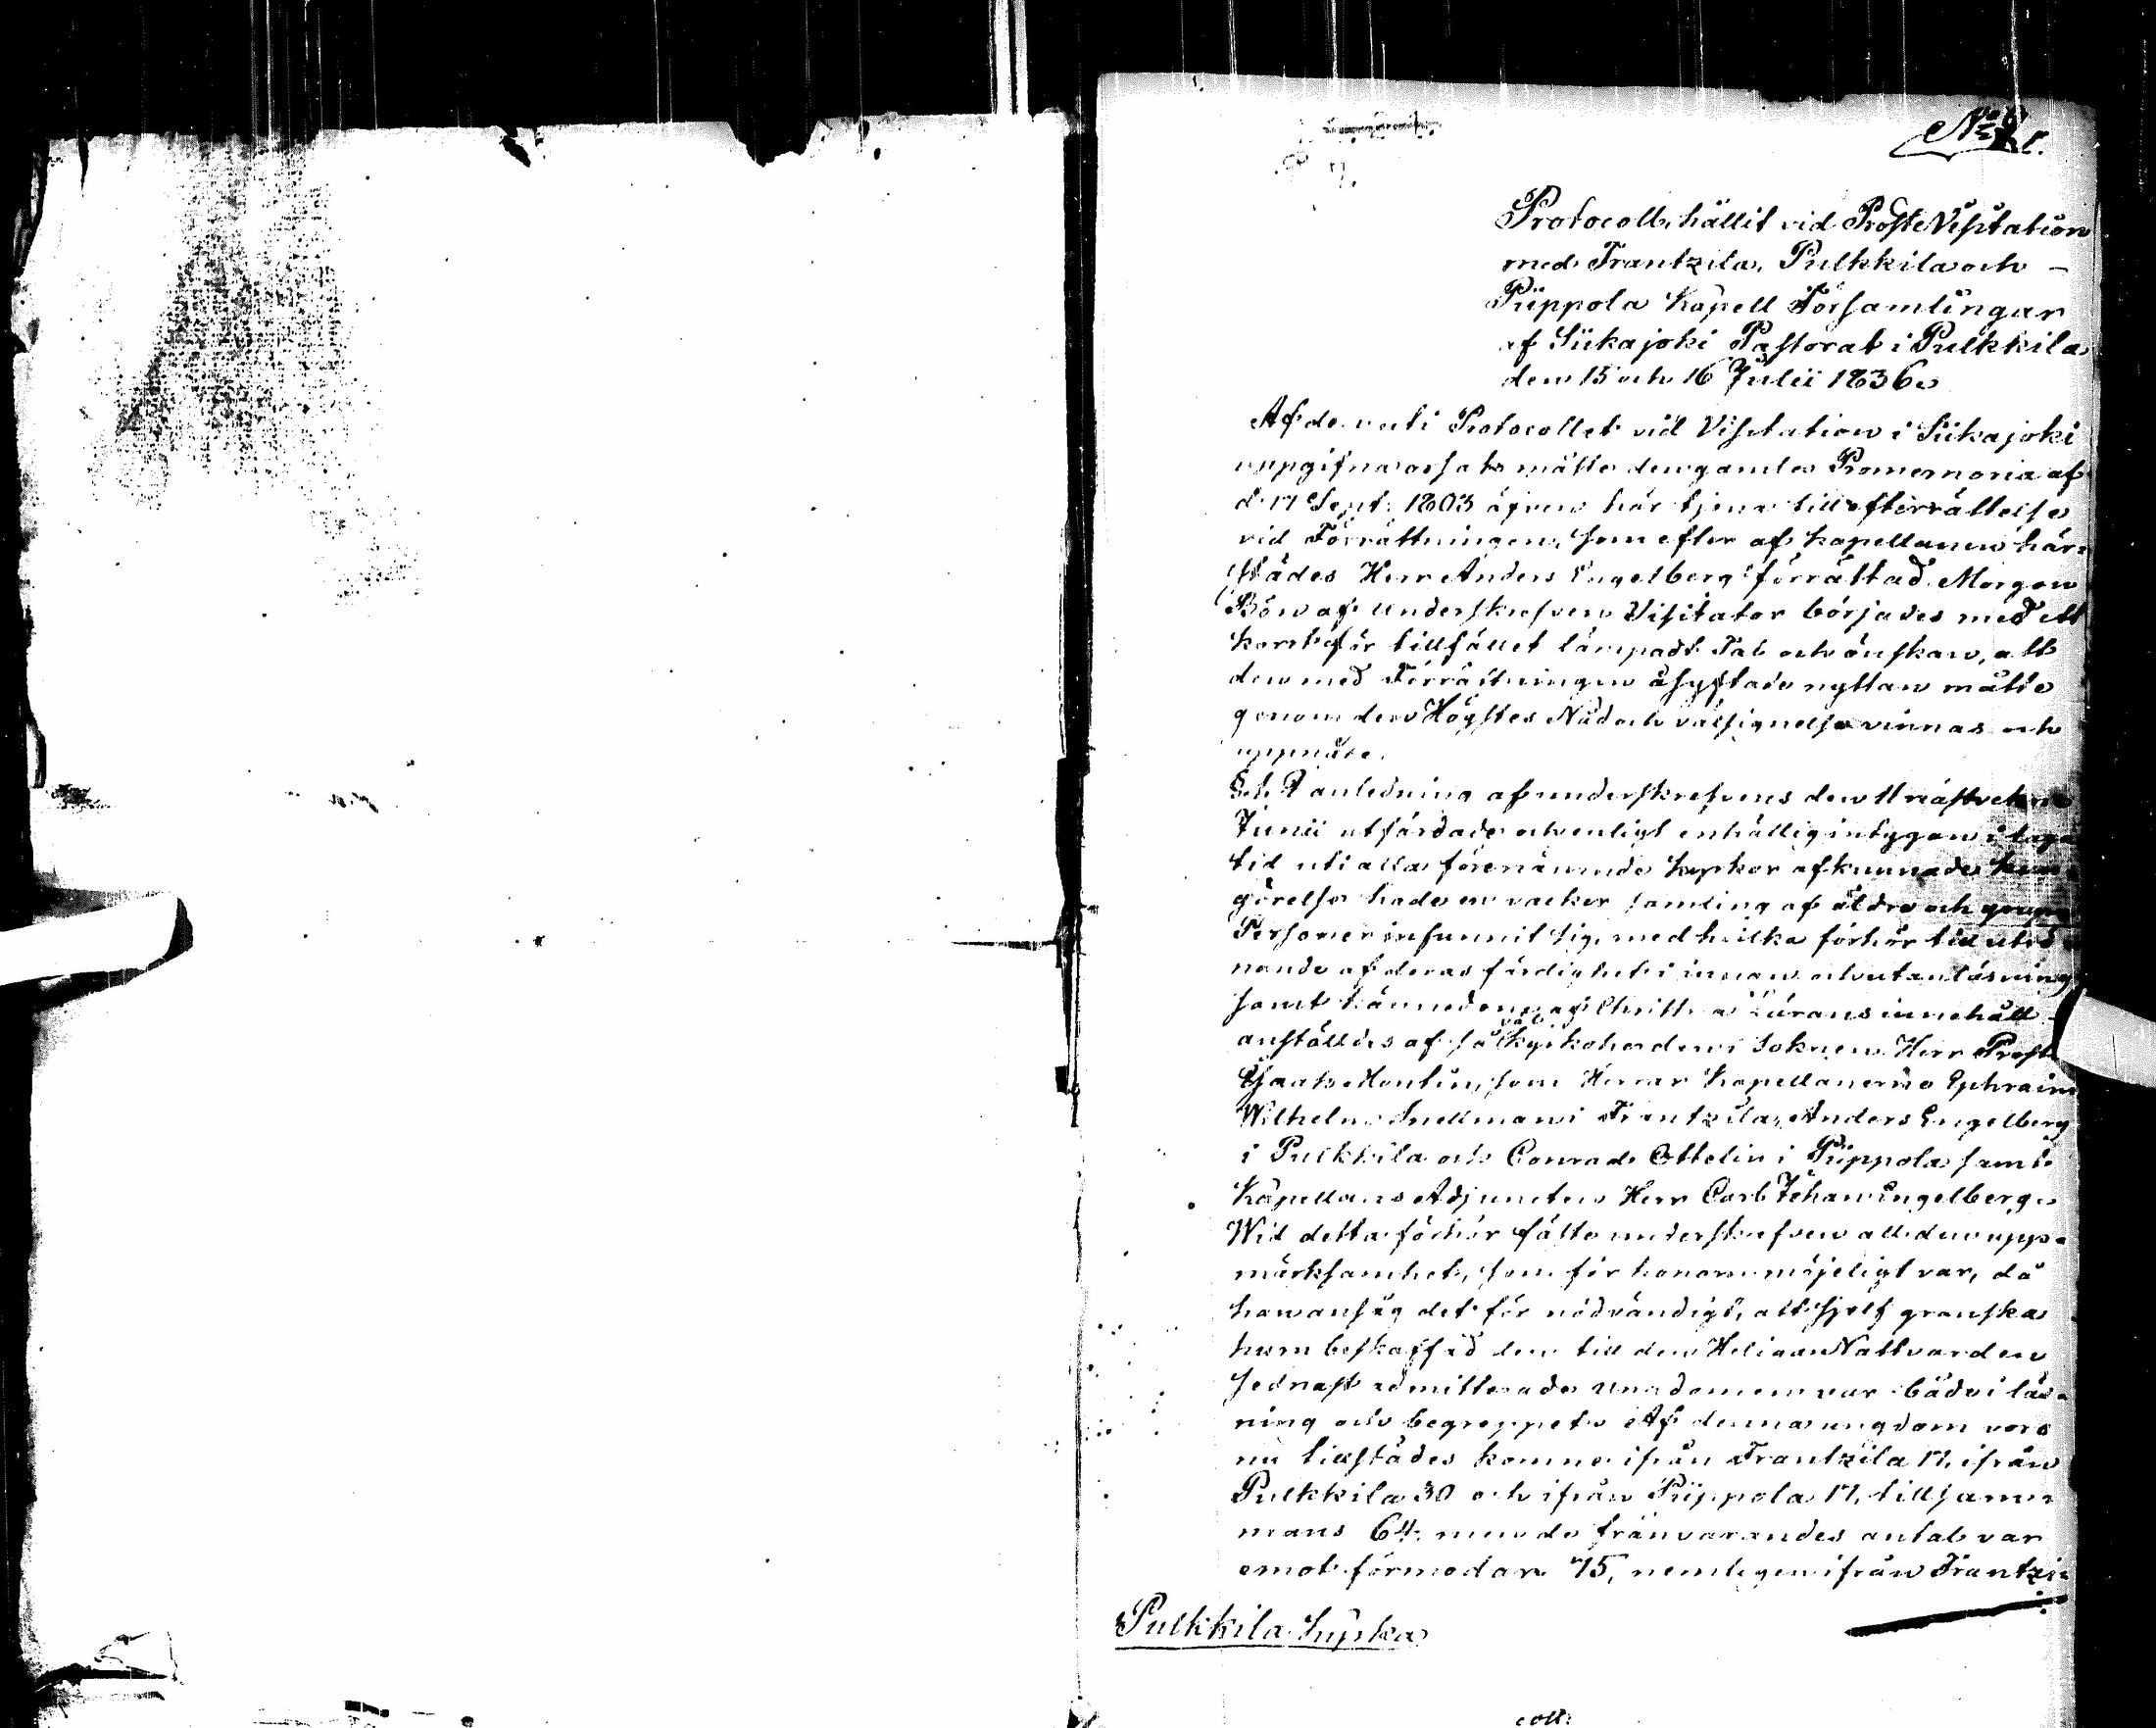 Protocoll, hållit vid Proste Visitation
med Frantzila, Pulkkila och -
Piippola Kapell Församlingar
af Siikajoki Pastorat i Pulkkila
den 15 och 16 Julii 1836.
Af de uti Protocollet vid Visitation i Siikajoki
uppgifna orsaker måtte den gamla Promemoria af
d. 17 Sept. 1803 äfven här tjena till efterrättelse
vid Förrättningen, som efter af Kapellanen här-
städes Herr Anders Engelberg förrättad Morgon
Bön af underskrefven Visitator börjades med ett
kort för tillfället lämpadt Tal och önskan, att
den med Förrättningen åsyftade nyttan måtte
genom den Högstes Nåd och välsignelse vinnas och
uppnås.
§ 1. I anledning af underskrefvens den 11 nästvekne
Junii utfärdade och enligt enhällig intygan i laga
tid uti alla förenämnde Kyrkor afkunnade kun-
görelse hade en vacker samling af äldre och yngre
Personer infunnit sig, med hvilka förhör till utrö-
nande af deras färdighet i innan och utanläsning
samt kännedom af Christna Lärans innehåll
anställdes af så väl Kyrkoherden i Soknen Herr Prosten
Isaak Montin, som Herrar Kapellanerne Ephraim
Wilhelm Snellman i Frantzila, Anders Engelberg
i Pulkkila och Conrad Ottelin i Piippola samt
Kapellans Adjuncten Herr Carl Johan Engelberg.
Wid detta förhör fäste underskrefven all den upp-
märksamhet, som för honom möjeligt var, då
han ansåg det för nödvändigt, att sjelf granska
huru beskaffad den till den Heliga Nattvarden
sednast admitterade ungdomen var både i läs-
ning och begreppet. Af denna ungdom voro
nu tillstädes komne ifrån Frantzila 17, ifrån
Pulkkila 30 och ifrån Piippola 17, tillsam-
mans 64, men de frånvarandes antal var
emot förmodan 75, nemligen ifrån Frantzi-
Pulkkila Kyrka
coll: